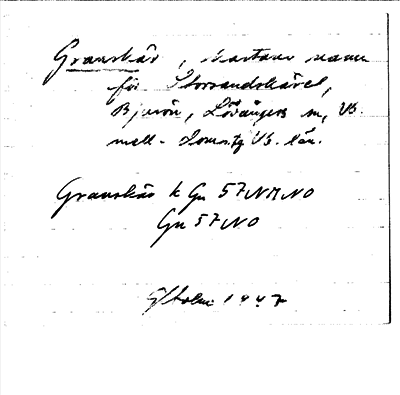 Granskär, kartans namn
för Storsandskäret,
Bjurön, Lövångers sn, Vb.
mell. Domsfg Vb. län.
Granskär k Gn 57NMNO
Gn 57NO
GHolm 1947